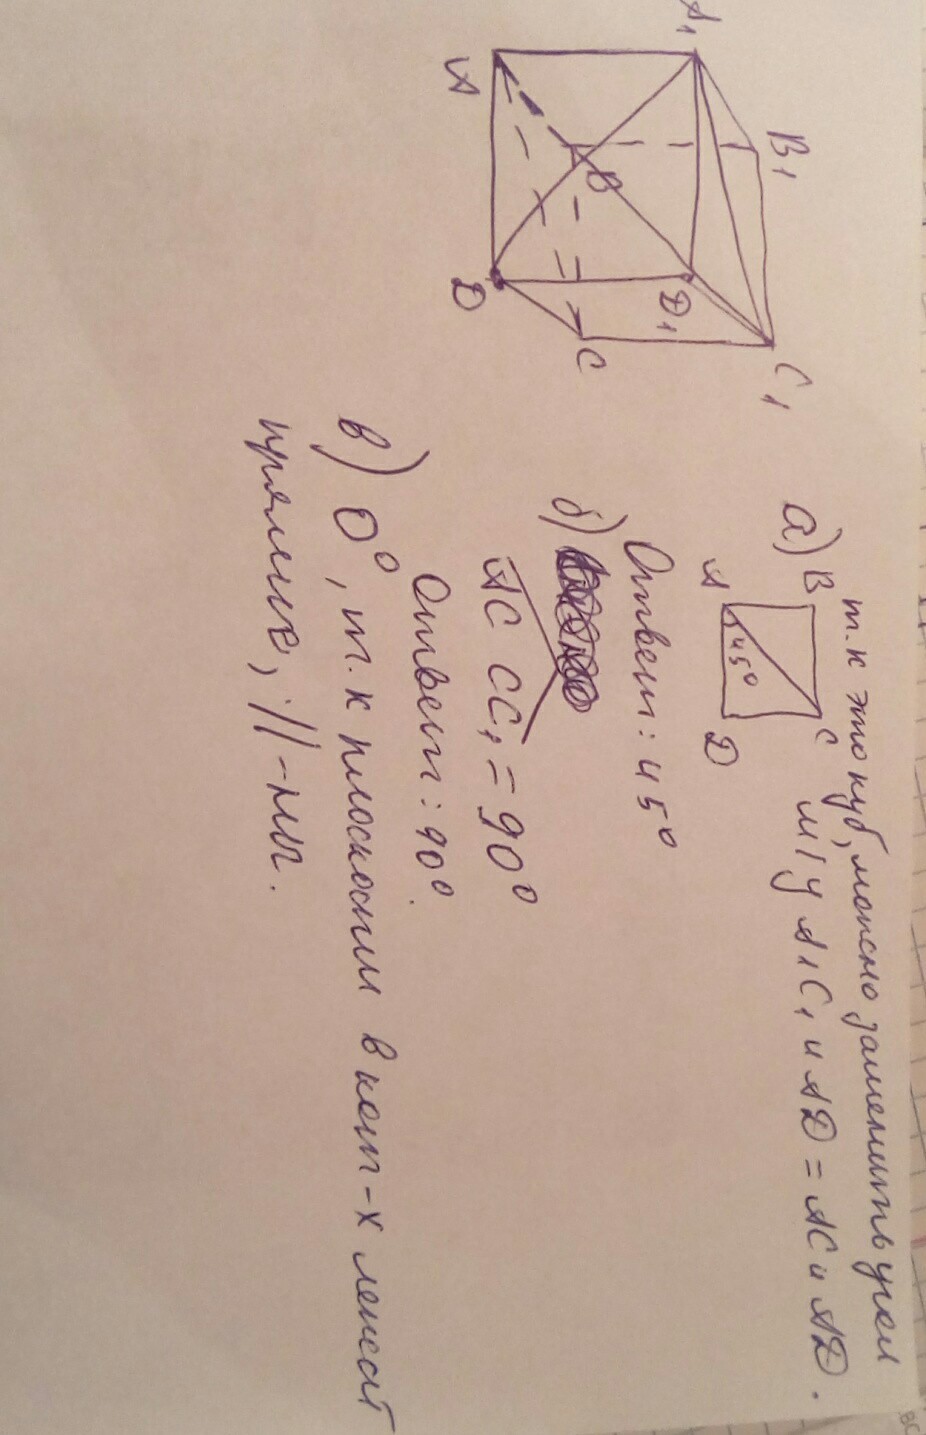 A₁
B₁
A
B
D
D₁
C
C₁
т.к это куб, можно заменить угол
а) B C м/у A₁C₁ и AD = AC и AD.
45°
A D
Ответ: 45°
б)
AC CC₁ = 90°
Ответ: 90°.
в) 0°, т.к плоскости в кот-х лежат
прямые, //-ны.